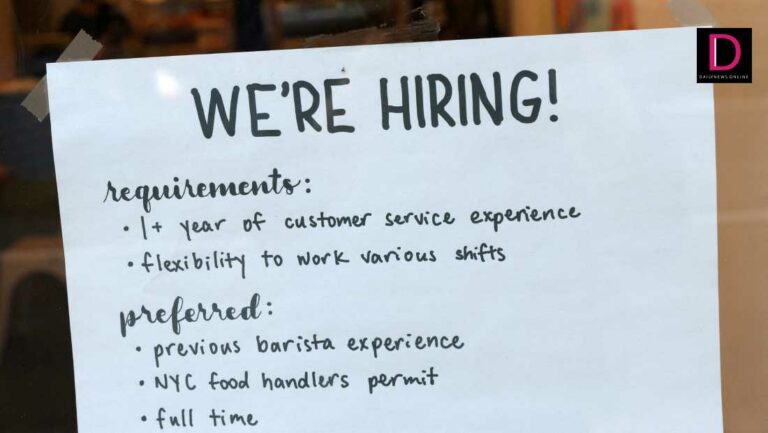 D
DAILYNEWS ONLINE
WE'RE HIRING!
requirements:
• 1+ year of customer service experience
• flexibility to work various shifts
preferred:
• previous barista experience
• NYC food handlers permit
• full time